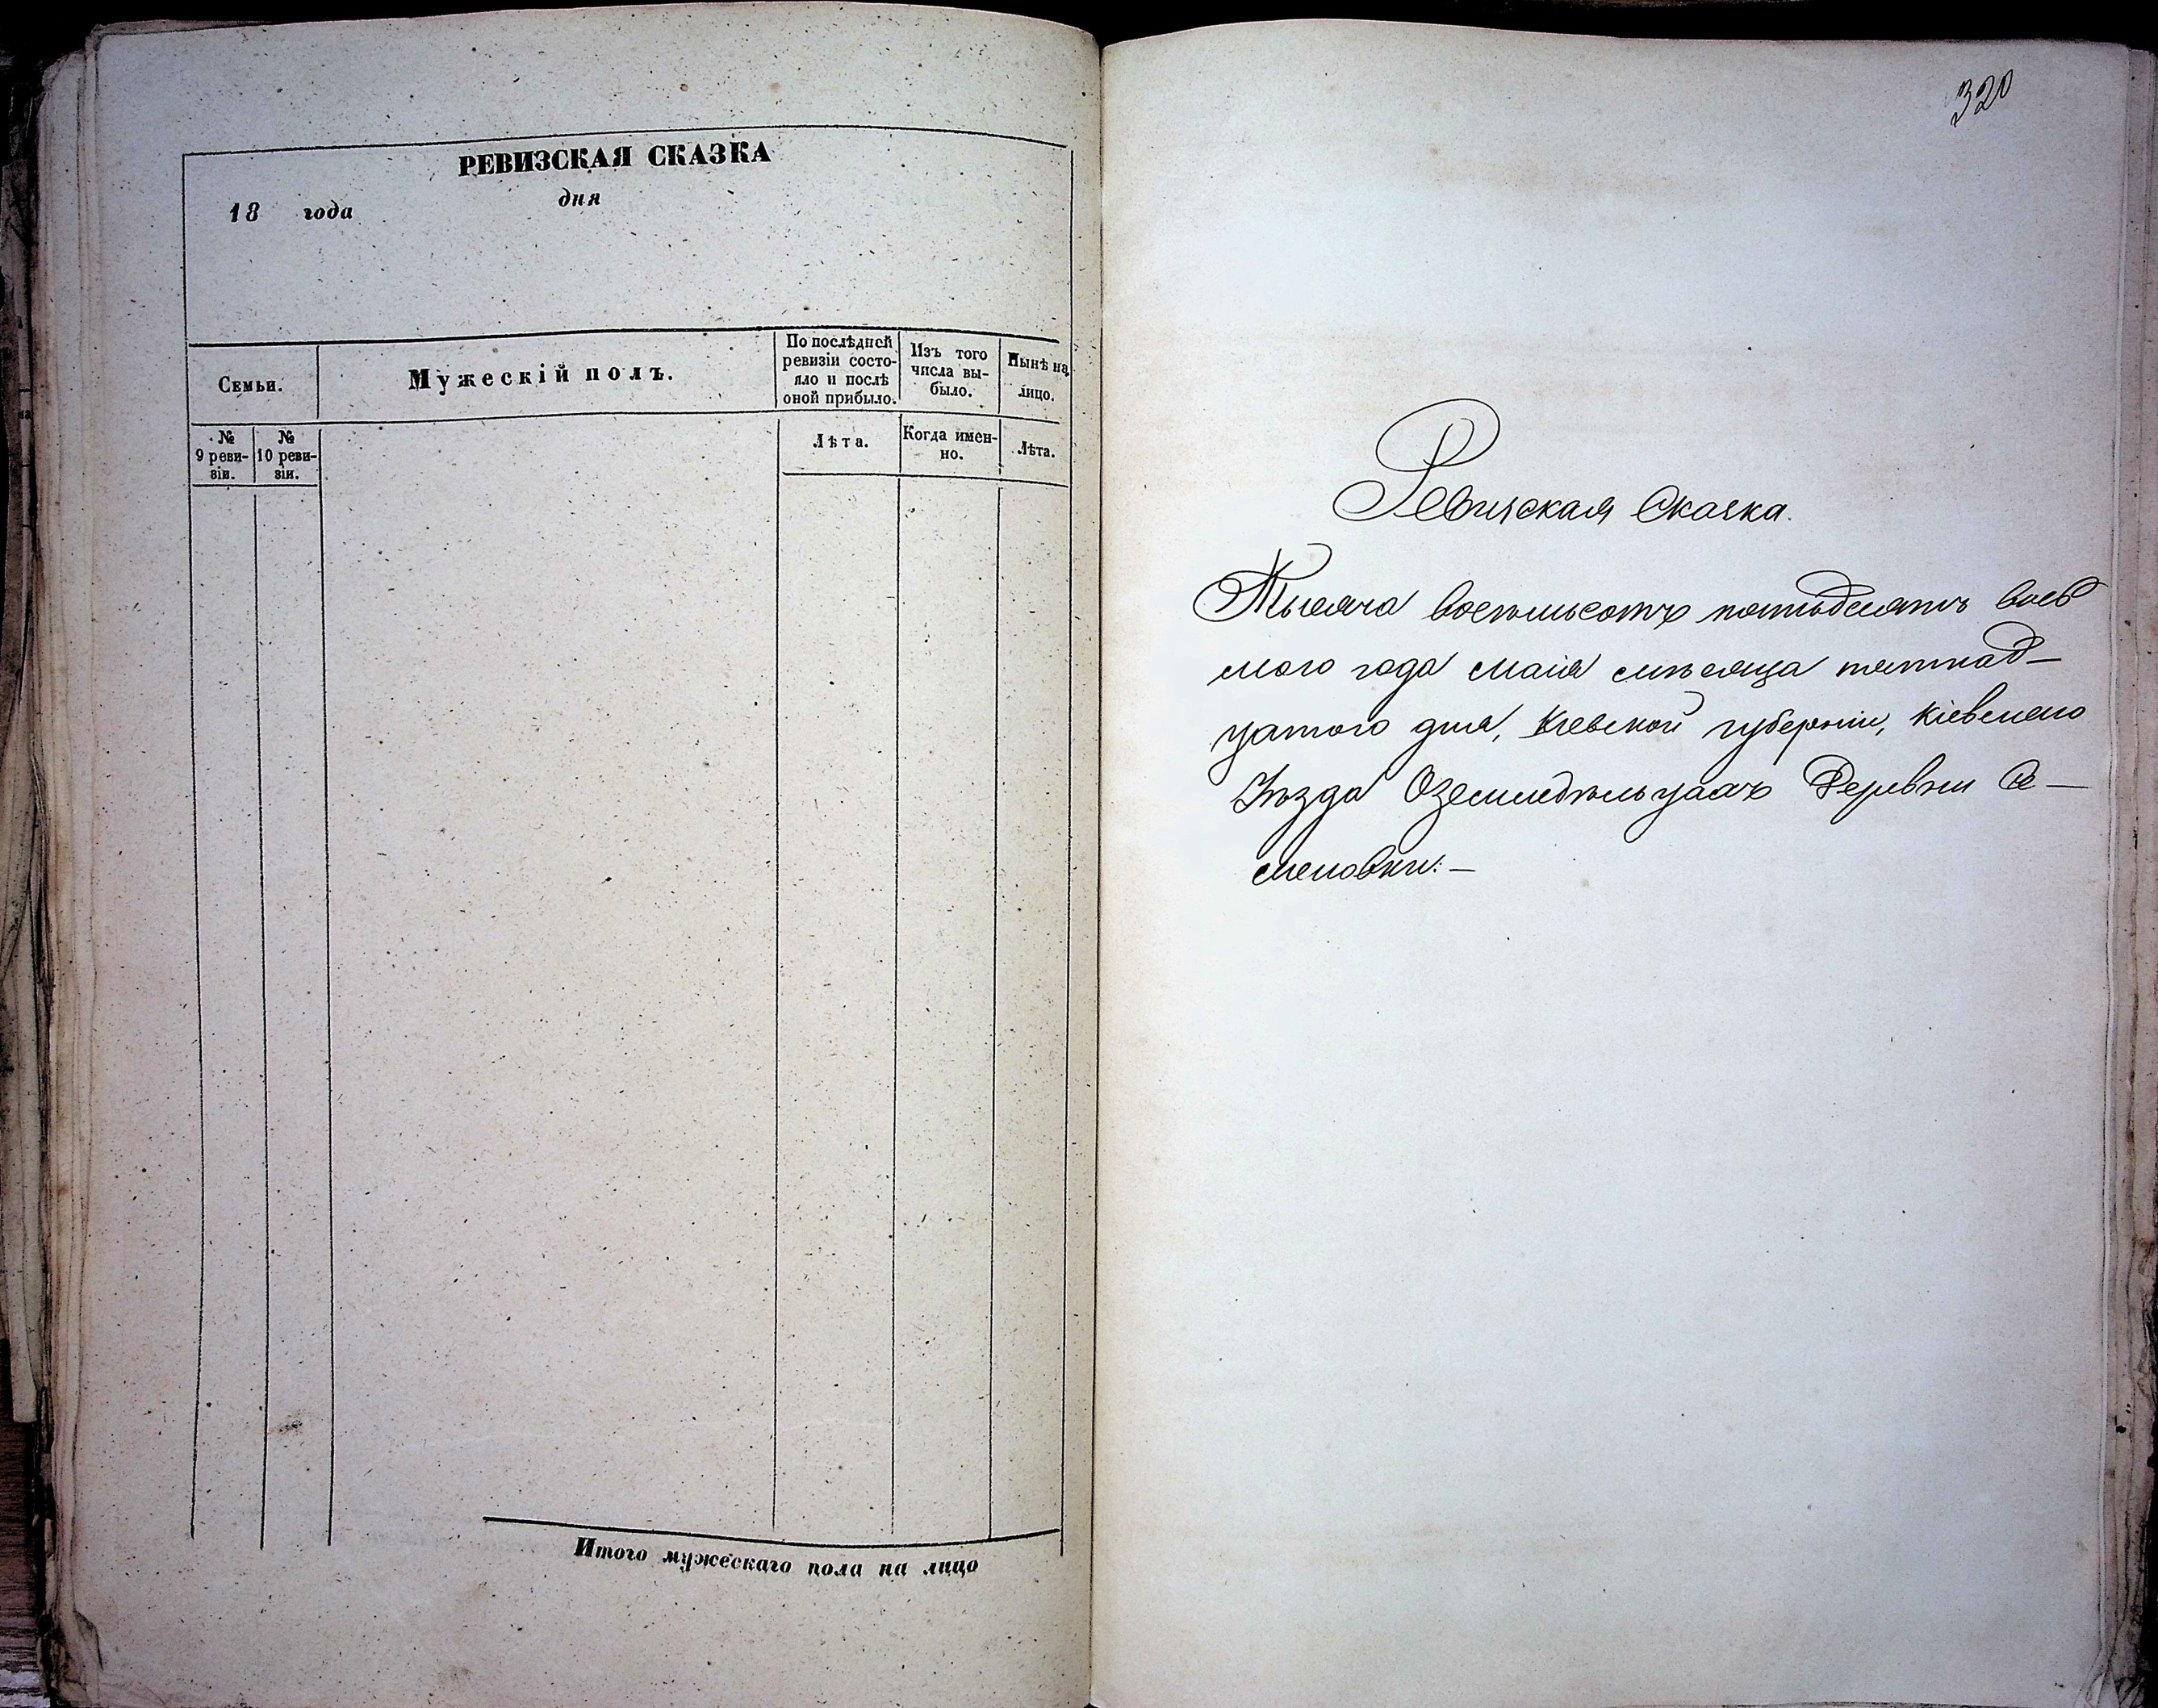 РЕВИЗСКАЯ СКАЗКА
18 года дня
Семьи.
Мужескій полъ.
По послѣдней
ревизіи состо-
яло и послѣ
оной прибыло.
Изъ того
числа вы-
было.
Нынѣ на
лицо.
№
9 реви-
зіи.
№
10 реви-
зіи.
Лѣта.
Когда имен-
но.
Лѣта.
Итого мужескаго пола на лицо
320
Ревизская Сказка.
Тысяча восемьсотъ пятьдесятъ вось
мого года маія мѣсяца пятнад-
цатого дня, Кіевской губерніи, Кіевского
Уѣзда О земледѣльцахъ Деревни Се-
меновки:-